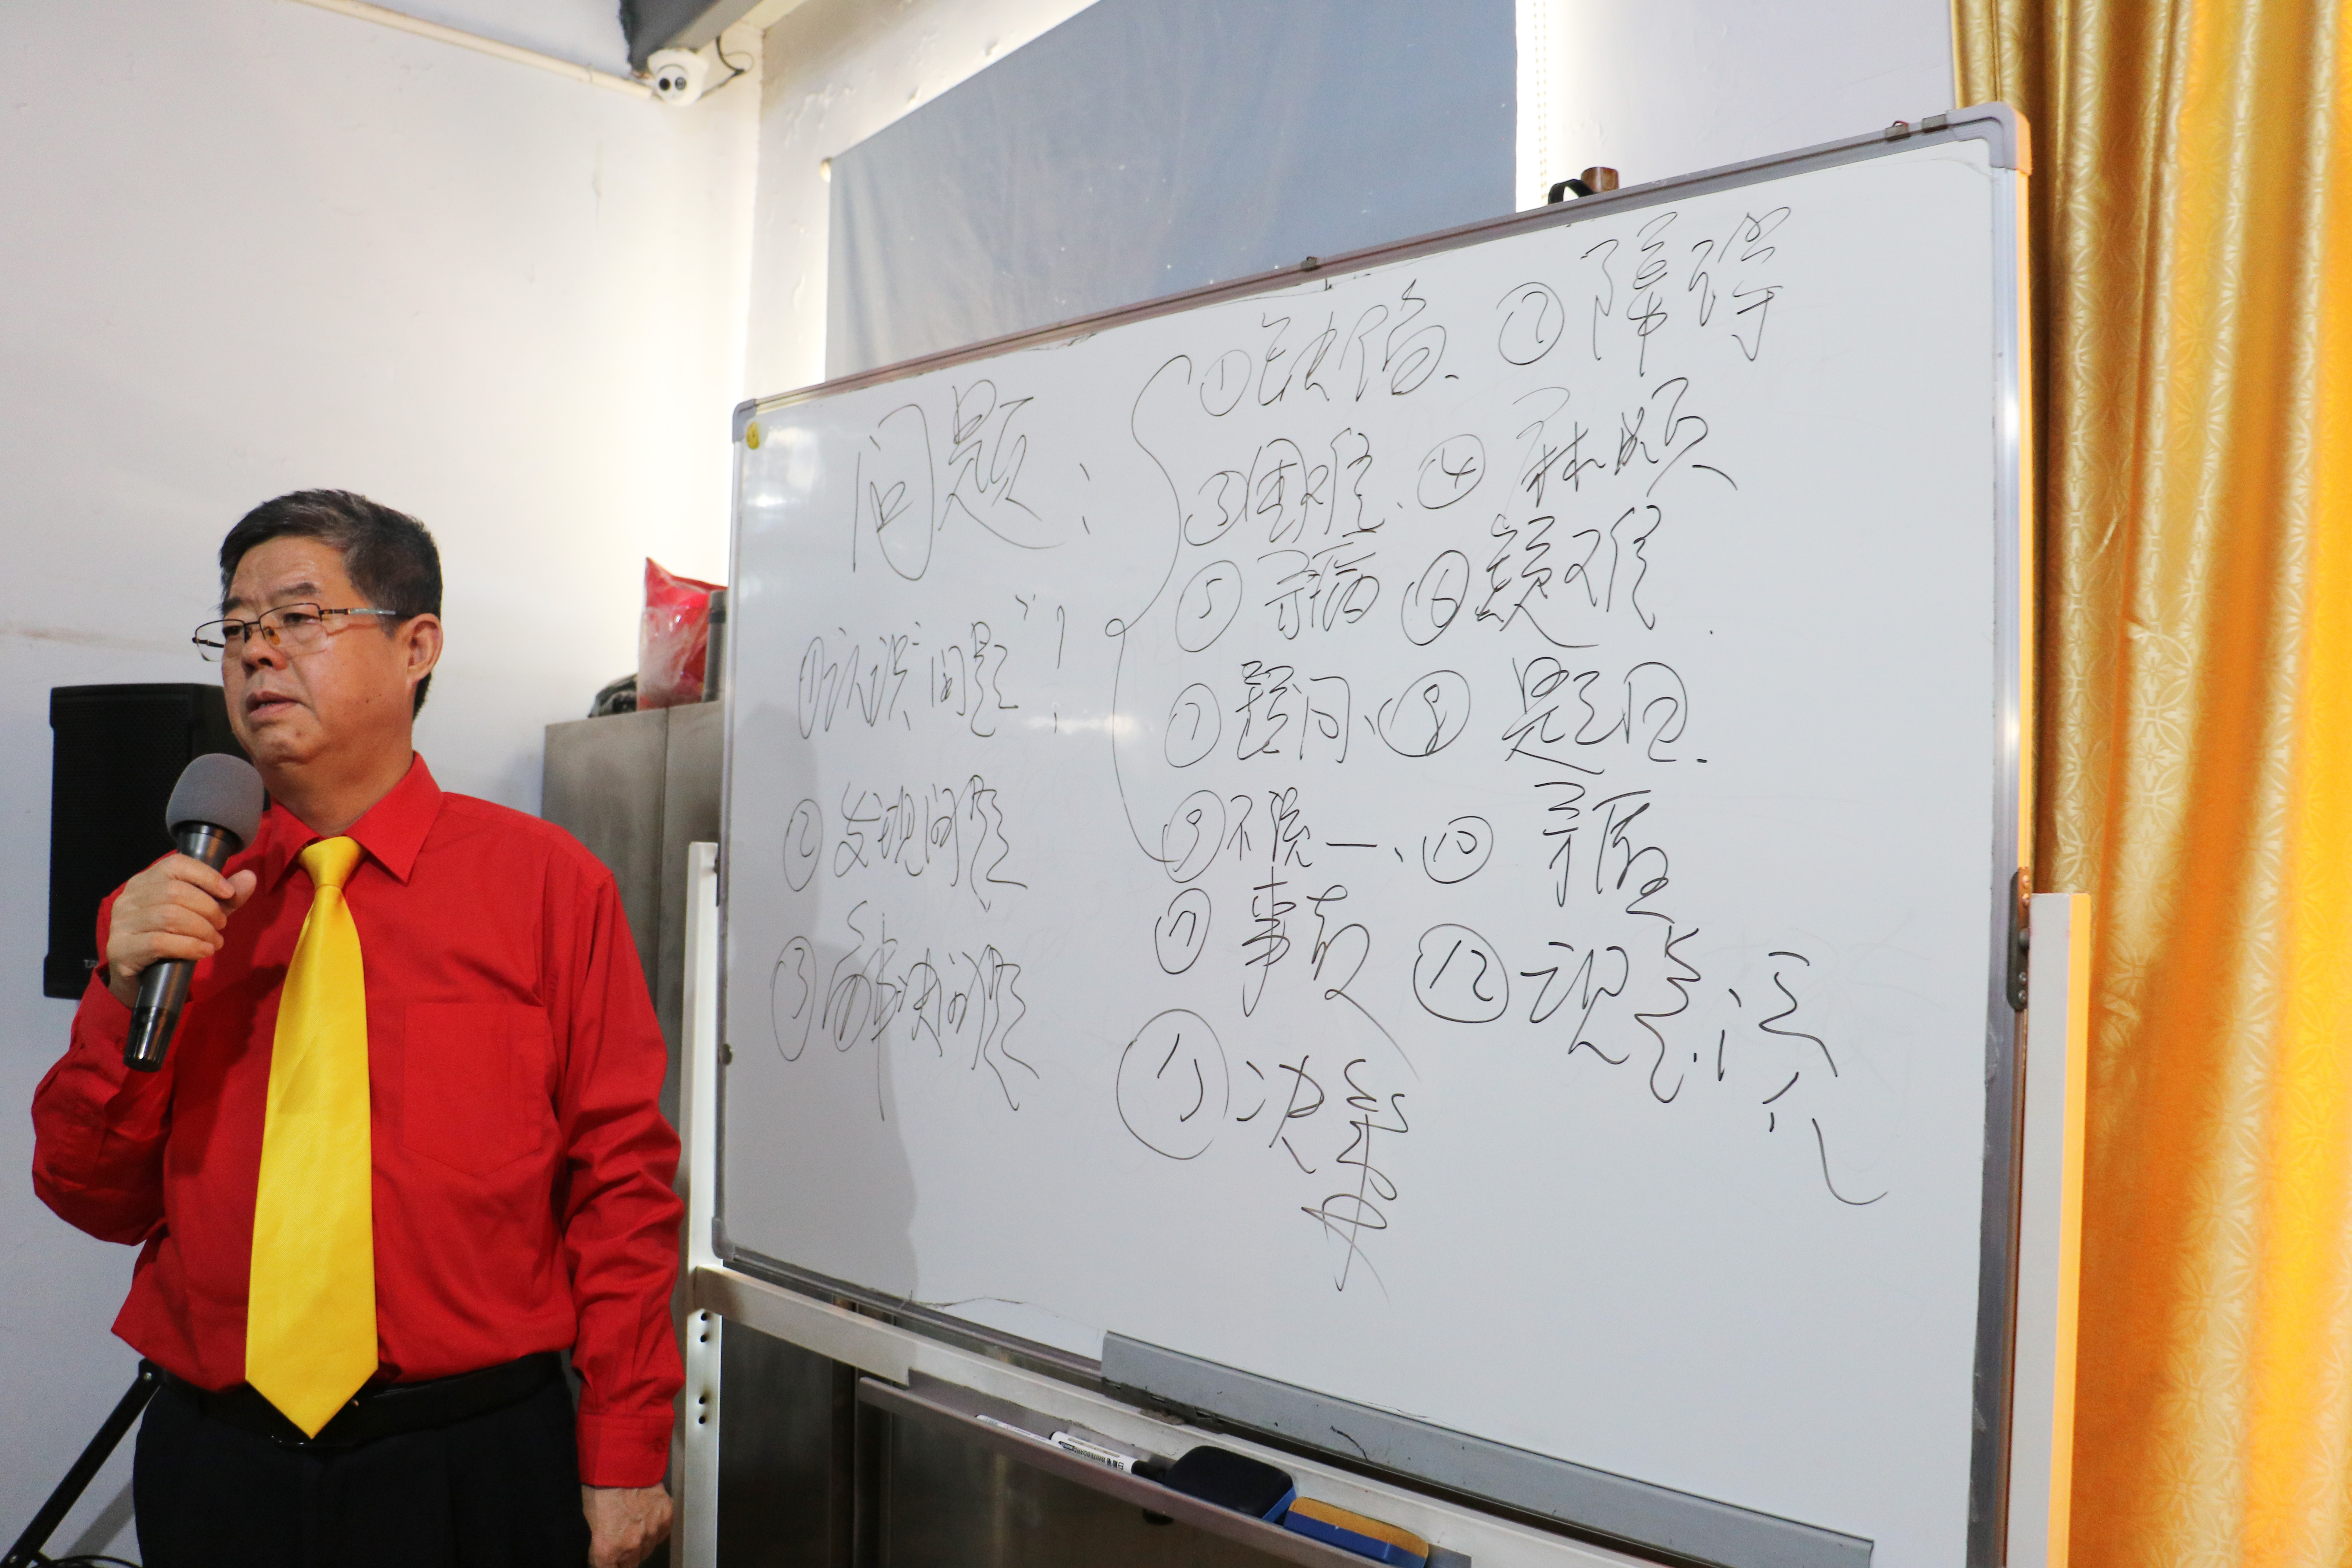 问题：
①认识"问题"？
②发现问题
③解决问题
①缺陷、②障碍
③困难、④麻烦
⑤弊病 ⑥疑难.
⑦疑问、⑧题目.
⑨不统一、⑩矛盾
⑪事故 ⑫
⑬决策